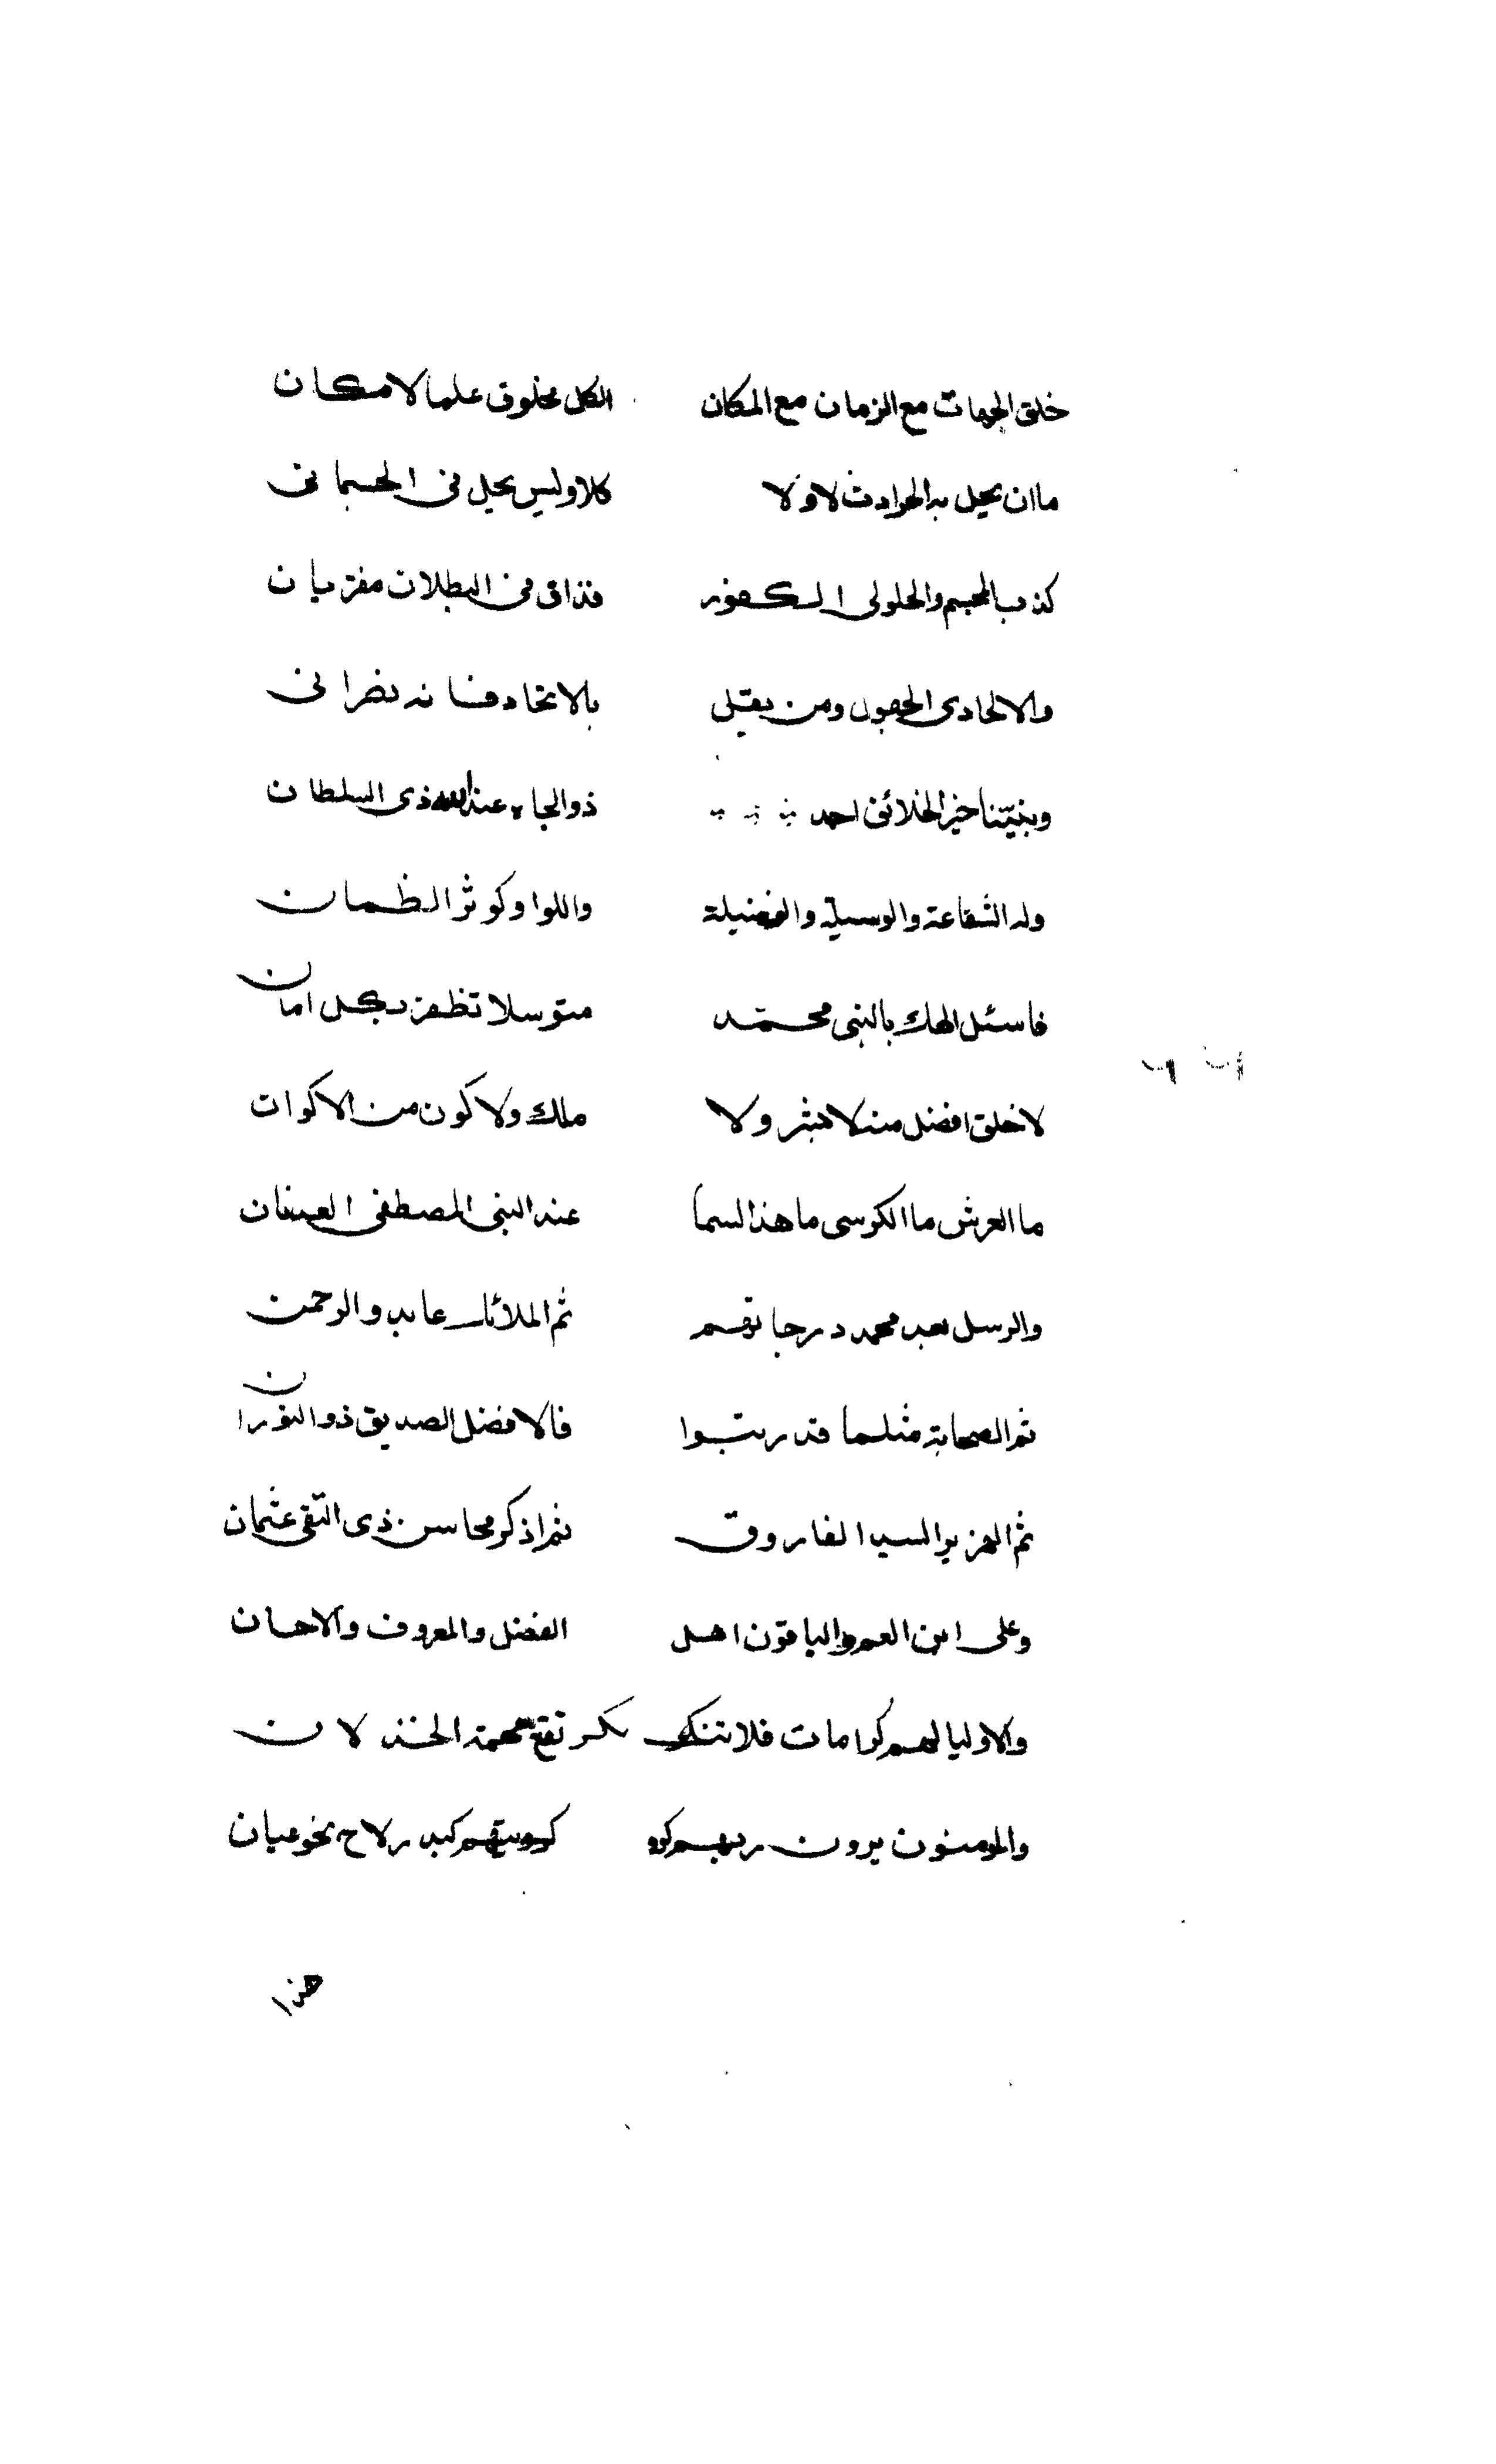 خلق الجهات مع الزمان مع المكان الكل مخلوق علما لامكان
ما ان يحل به الحوادث لا ولا كلا وليس يحل في الجسماني
كذب المجسم والحلولي الكفور فذان في البطلان مفتريان
والالحادي الجهول ومن يقل بالاتحاد فانه نصراني
ونبيّنا خير الخلائق احمد ذو الجاه عند الله ذي السلطان
وله الشفاعة والوسيلة والفضيلة واللوا وكوثر الظمان
فاسئل الهك بالنبي محمّد متوسلا تظفر بكل امان
لا خلق افضل منه لا بشر ولا ملك ولا كون من الاكوان
ما العرش ما الكرسي ما هذا السما عند النبي المصطفى العدنان
والرسل بعد محمد درجاتهم ثم الملائك عابدو الرحمن
ثم الصحابة مثلما قد رتبوا فالافضل الصديق ذو النوران
ثم الهزبر السيد الفاروق ثم اذكر محاسن ذي التقى عثمان
وعلى ابن العم والباقون اهل الفضل والمعروف والاحسان
والاوليا لهم كرامات فلا تنكر تقع بمهمة الخذلان
والمومنون يرون ربهم كرويتهم كبدر لاح نحو عيان